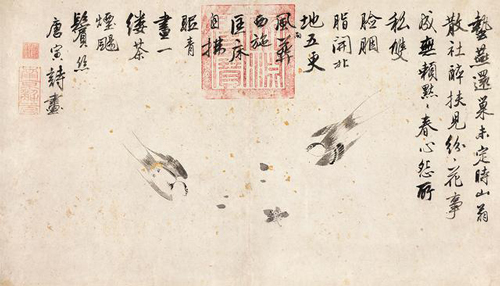 燕還巢未定時山翁
散社醉扶兒紛〻花事
成無賴默〻春心怨所
私雙
臉胭
脂開北
地五更
風雨葬
西施
匡床
自拂
眠青
晝一
縷茶
煙颺
鬢絲
唐寅詩畫